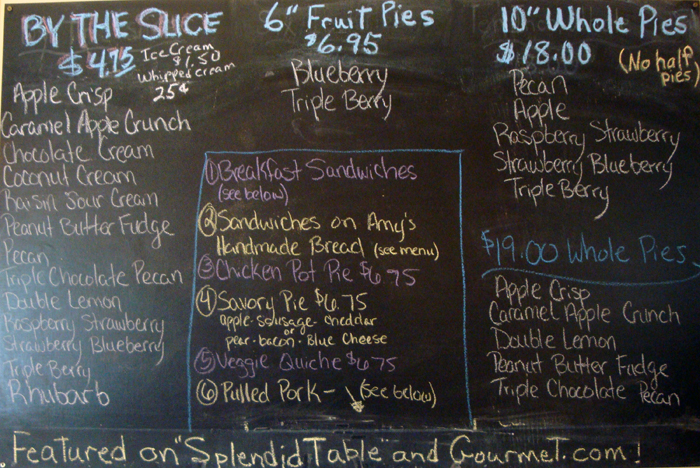 BY THE SLICE
$4.75
Ice Cream
$1.50
Whipped cream
25¢
Apple Crisp
Caramel Apple Crunch
Chocolate Cream
Coconut Cream
Raisin Sour Cream
Peanut Butter Fudge
Pecan
Triple Chocolate Pecan
Double Lemon
Raspberry Strawberry
Strawberry Blueberry
Triple Berry
Rhubarb
6" Fruit Pies
$6.95
Blueberry
Triple Berry
① Breakfast Sandwiches
(see below)
② Sandwiches on Amy's
Handmade Bread (see menu)
③ Chicken Pot Pie $6.75
④ Savory Pie $6.75
apple-sausage-cheddar
or
pear-bacon-Blue Cheese
⑤ Veggie Quiche $6.75
⑥ Pulled Pork - (see below)
10" Whole Pies
$18.00
(No half
pies)
Pecan
Apple
Raspberry Strawberry
Strawberry Blueberry
Triple Berry
$19.00 Whole Pies
Apple Crisp
Caramel Apple Crunch
Double Lemon
Peanut Butter Fudge
Triple Chocolate Pecan
Featured on "Splendid Table" and Gourmet.com!